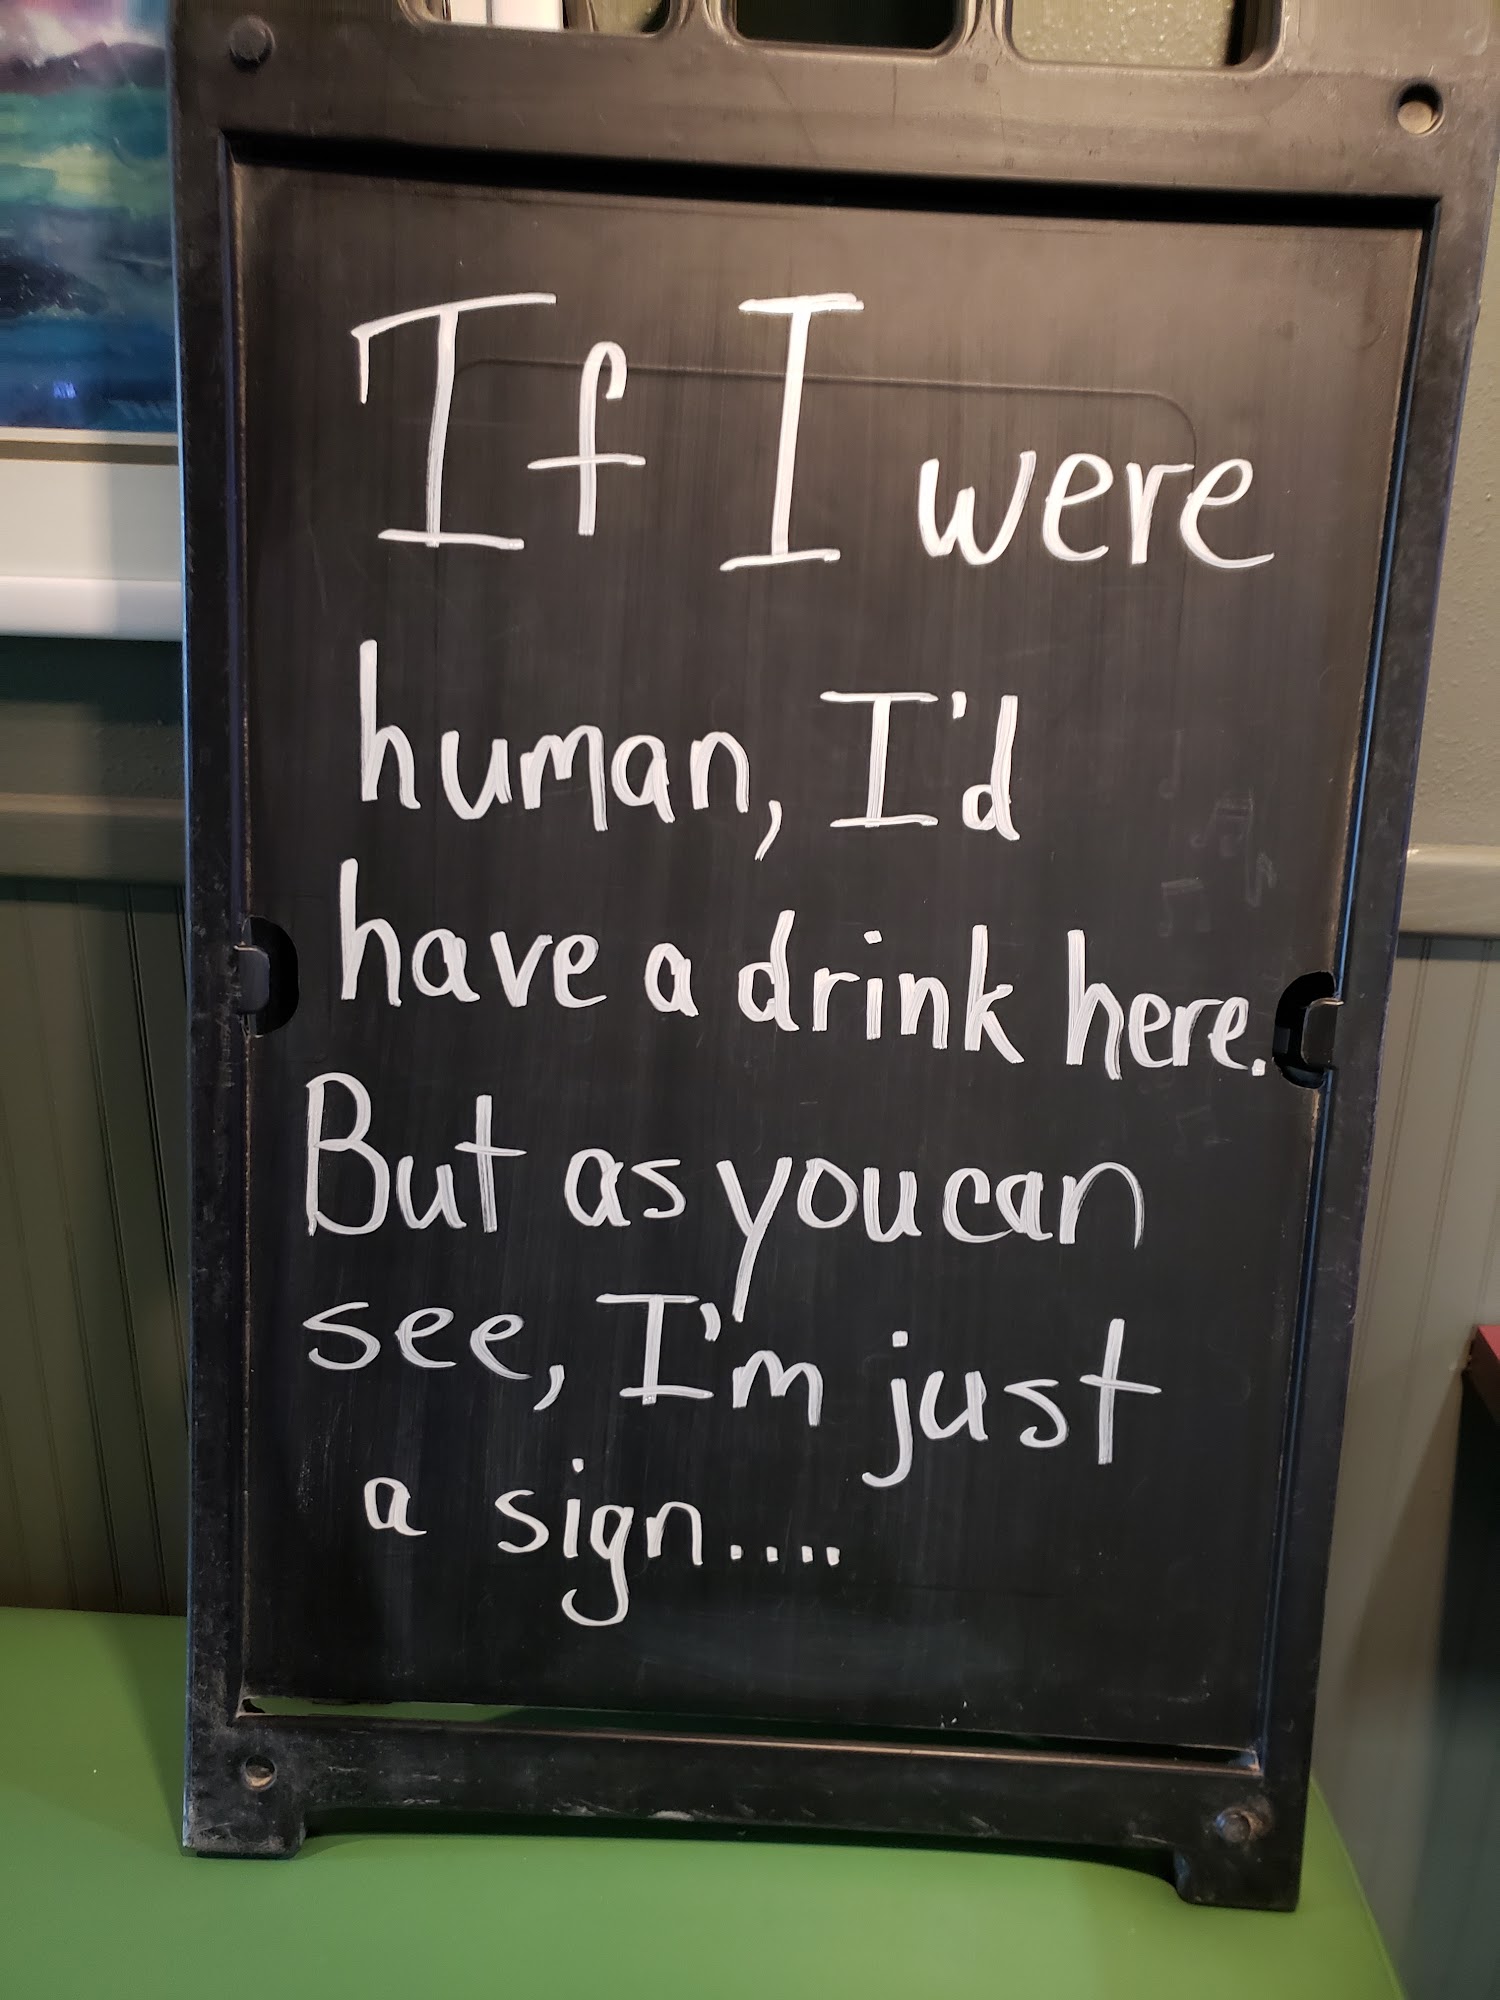 If I were
human, I'd
have a drink here.
But as you can
see, I'm just
a sign....